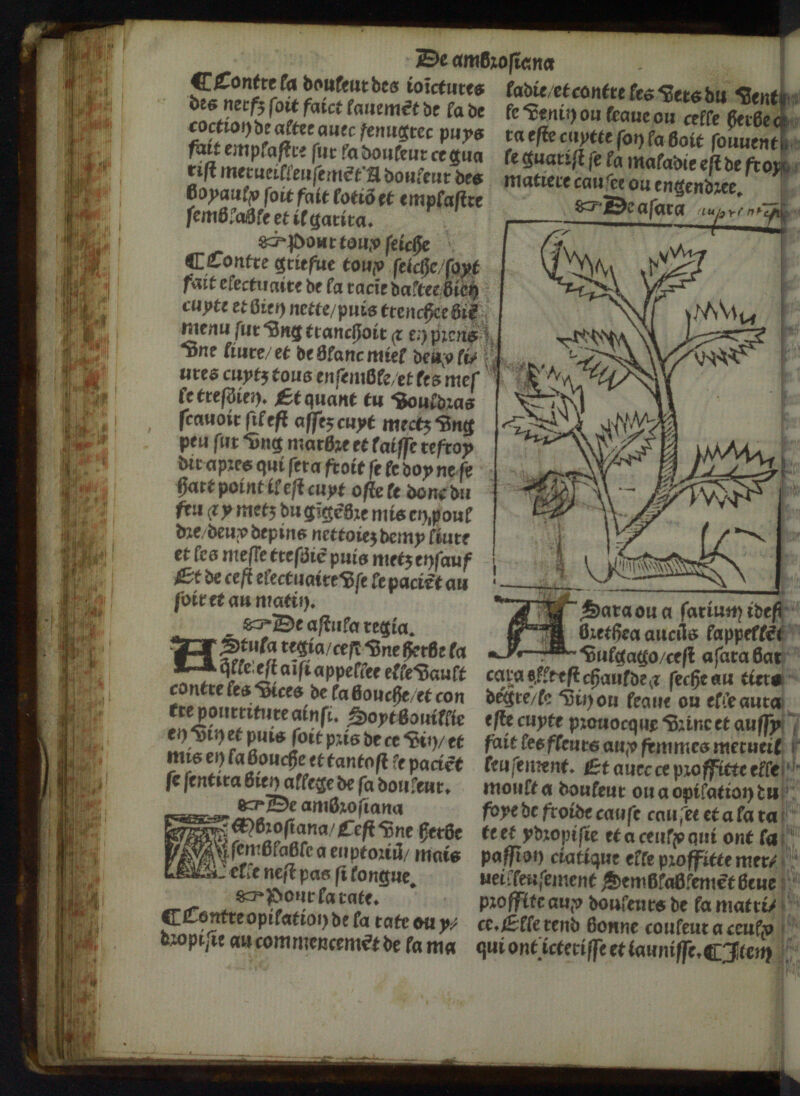 De ambrosiana
¶ Contre la douleur des ioïctures
des nerfz soit faict lauemēt de la de
coction de altee auec fenugrec puys
fait emplastre sur la douleur ce gua
rist merueilleusemēt A douleur des
boyaulx soit fait lotiō et emplastre
semblable et il garira.
☞ Pour toux seiche
¶ Contre griefue toux seiche/soyt
fait electuaire de la racie daltee biē
cuyte et bien nette/puis trenchee biē
menu sur vng tranchoir & en prens
vne liure/et de blanc miel deux li⸗
ures cuytz tous ensemble/et les mes
le tresbien. Et quant tu vouldras
scauoir sil est assez cuyt mectz vng
peu sur vng marbre et laisse refroy
dir apres qui sera froit se le doy ne se
hart point il est cuyt oste le donc du
feu & y metz du gīgēbre mis en poul
dre/deux depins nettoiez demy liure
et les mesle tresbiē puis metz en sauf
Et de cest electuaire vse le paciēt au
soir et au matin.
☞ De astula regia.
AStula regia/cest vne herbe la
q̄lle est aīsi appellee elle vault
contre les vices de la bouche/et con
tre pourriture ainsi. Soyt bouillie
en vin et puis soit pris de ce vin/et
mis en la bouche et tantost le paciēt
se sentira bien allege de sa douleur.
☞ De ambrosiana
AMbrosiana/Cest vne herbe
semblable a euptoriū/mais
elle nest pas si longue.
☞ Pour la rate.
¶ Contre opilation de la rate ou y⸗
dropisie au commencemēt de la ma
ladie/et contre les vers du vent
le venin ou leaue ou celle herbe
ra este cuytte son la boit souuent
le guarist se la maladie est de froy
matiere causee ou engendree.
☞ De asara
ASara ou a sarium idest
brethea aucūs lappellēt
vulgago/cest asara bac
cara elle est chaulde & seche au tiers
degre/le vin ou leaue ou elle aura
este cuyte prouocque vrine et aussy
fait les fleurs aux femmes merueil
leusement. Et auec ce proffitte elle
moult a douleur ou a opilation du
foye de froide cause causee et a la ra
te et ydropisie et a ceulx qui ont la
passion ciatique elle proffitte mer⸗
ueilleusement Semblablemēt beue
proffite aux douleurs de la matri⸗
ce. Elle rend bonne couleur a ceulx
qui ont icterisse et iaunisse. ¶ Item